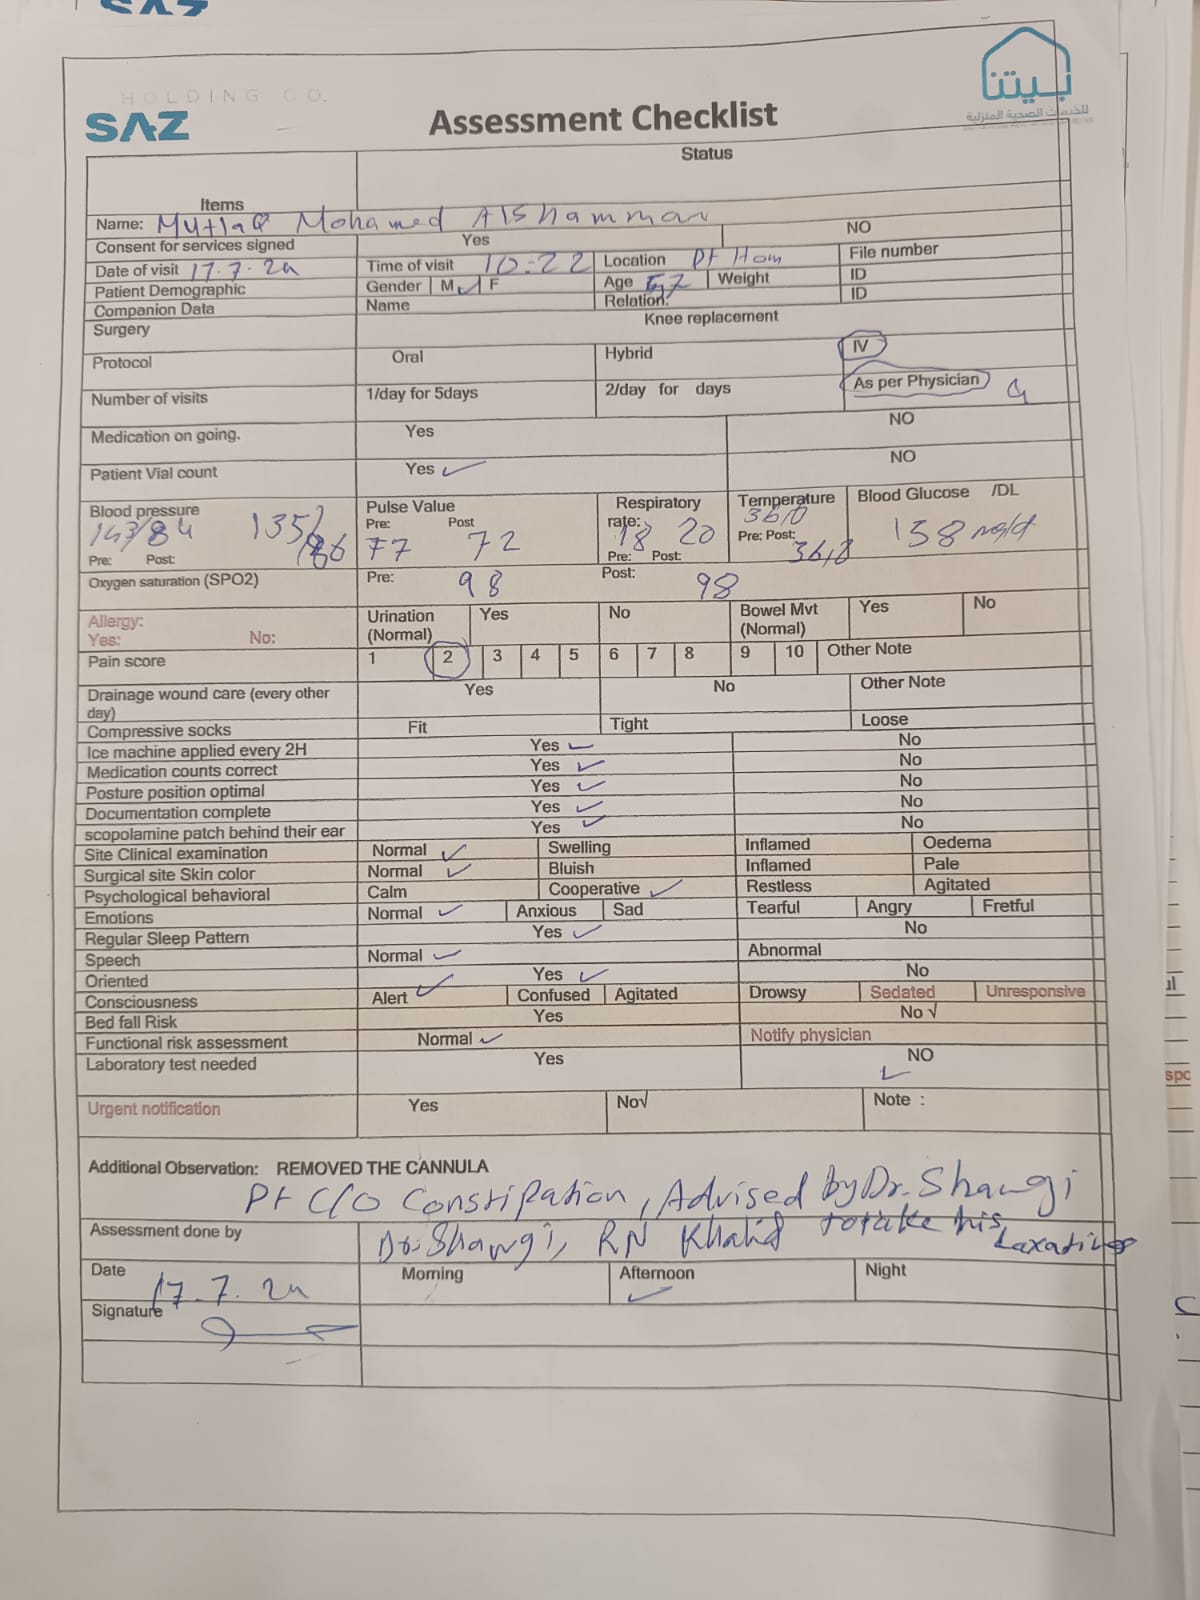 HOLDING CO.
SAZ
بيتنا
للخدمات الصحية المنزلية
Assessment Checklist
Items Status
Name: Mutlaq Mohamed Alshammari
Consent for services signed Yes NO
Date of visit 17.7.24 Time of visit 10:22 Location Pt Hom File number
Patient Demographic Gender M ✓ F Age 57 Weight ID
Companion Data Name Relation: ID
Surgery Knee replacement
Protocol Oral Hybrid IV
Number of visits 1/day for 5days 2/day for days As per Physician
Medication on going. Yes NO
Patient Vial count Yes ✓ NO
Blood pressure Pulse Value Respiratory rate: Temperature Blood Glucose /DL
143/84 135/86 Pre: 77 Post 72 18 20 36,6 36,8 158 mg/d
Pre: Post: Pre: Post: Pre: Post:
Oxygen saturation (SPO2) Pre: 98 Post: 98
Allergy: Urination (Normal) Yes No Bowel Mvt (Normal) Yes No
Yes: No:
Pain score 1 2 3 4 5 6 7 8 9 10 Other Note
Drainage wound care (every other day) Yes No Other Note
Compressive socks Fit Tight Loose
Ice machine applied every 2H Yes ✓ No
Medication counts correct Yes ✓ No
Posture position optimal Yes ✓ No
Documentation complete Yes ✓ No
scopolamine patch behind their ear Yes ✓ No
Site Clinical examination Normal ✓ Swelling Inflamed Oedema
Surgical site Skin color Normal ✓ Bluish Inflamed Pale
Psychological behavioral Calm Cooperative ✓ Restless Agitated
Emotions Normal ✓ Anxious Sad Tearful Angry Fretful
Regular Sleep Pattern Yes ✓ No
Speech Normal ✓ Abnormal
Oriented Yes ✓ No
Consciousness Alert ✓ Confused Agitated Drowsy Sedated Unresponsive
Bed fall Risk Yes No √
Functional risk assessment Normal ✓ Notify physician
Laboratory test needed Yes NO ✓
Urgent notification Yes No√ Note :
Additional Observation: REMOVED THE CANNULA
Pt C/O Constipation, Advised by Dr. Shawgi
to take his Laxatives
Assessment done by Dr. Shawgi, RN Khalid
Date 17.7.24 Morning Afternoon ✓ Night
Signature